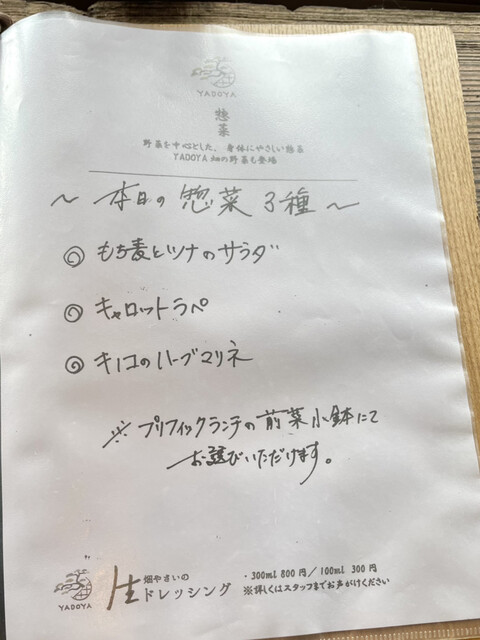 YADOYA
惣菜
野菜を中心とした、身体にやさしい惣菜
YADOYA 畑の野菜も登場
～ 本日の惣菜 3種 ～
◎ もち麦とツナのサラダ
◎ キャロットラペ
◎ キノコのハーブマリネ
※ プリフィックランチの前菜小鉢にて
お選びいただけます。
YADOYA
畑やさいの
生ドレッシング
・300ml 800円／100ml 300円
※詳しくはスタッフまでお声がけください